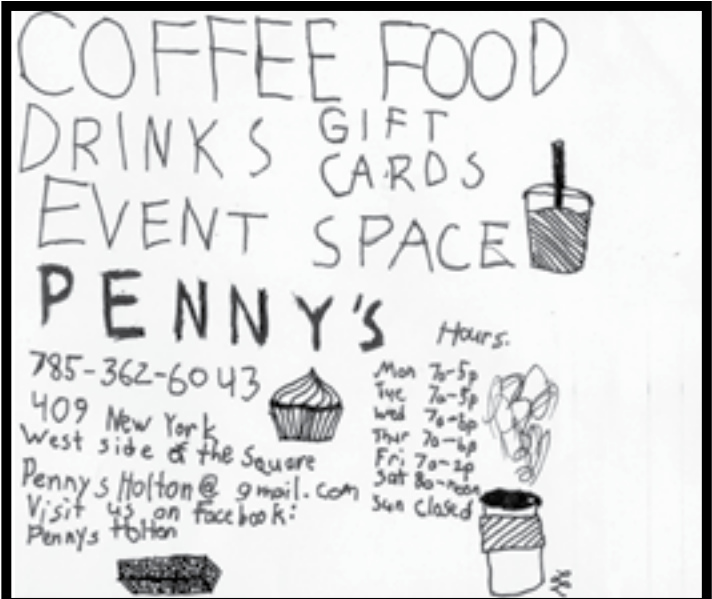 COFFEE FOOD
DRINKS GIFT CARDS
EVENT SPACE
PENNY'S
785-362-6043
409 New York
West side of the Square
Pennys Holton@gmail.com
Visit us on facebook:
Pennys Holton
Hours.
Mon 7a-5p
Tue 7a-5p
Wed 7a-6p
Thur 7a-6p
Fri 7a-2p
Sat 8a-noon
Sun Closed